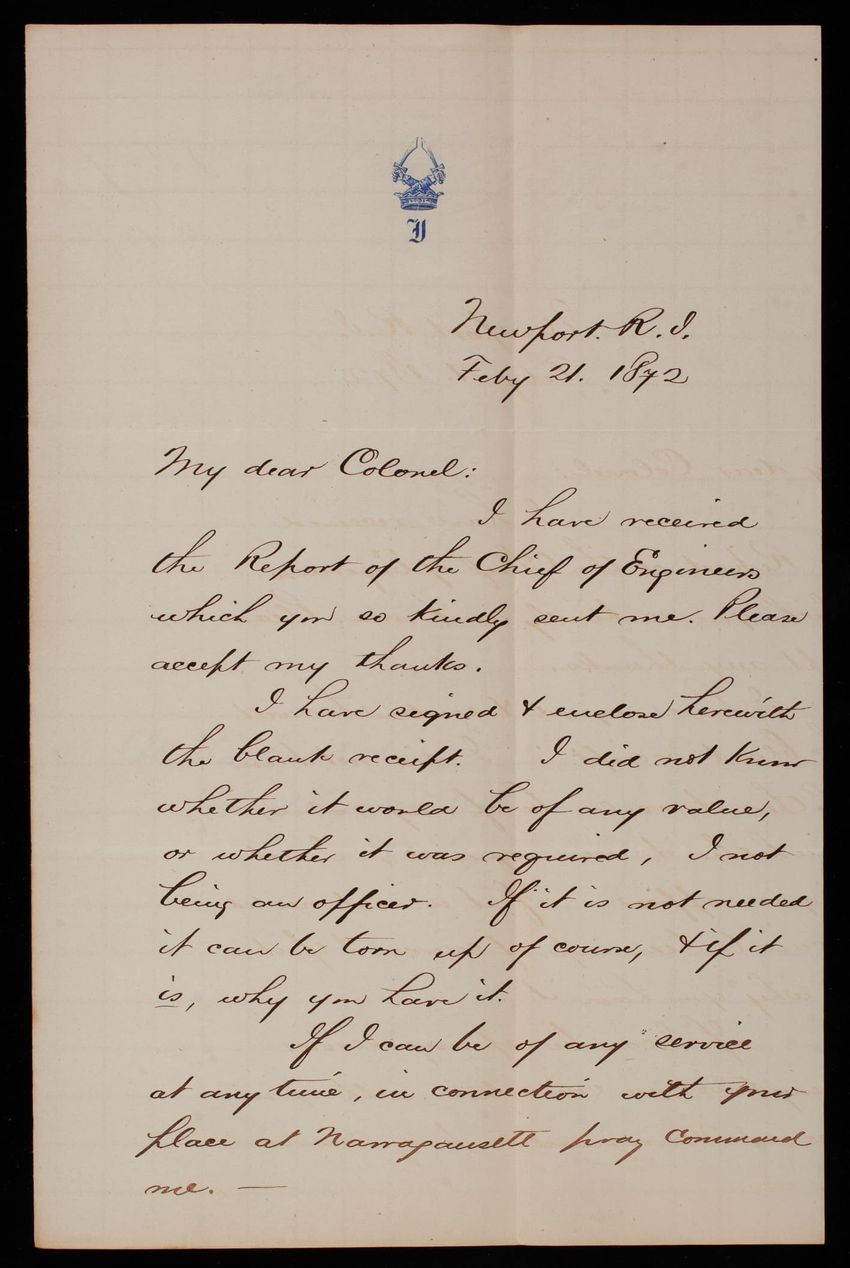 J
Newport. R. I.
Feby 21. 1872
My dear Colonel:
I have received
the Report of the Chief of Engineers
which you so kindly sent me. Please
accept my thanks.
I have signed & enclose herewith
the blank receipt. I did not know
whether it would be of any value,
or whether it was required, I not
being an officer. If it is not needed
it can be torn up of course, & if it
is, why you have it.
If I can be of any service
at any time, in connection with your
place at Narragansett pray command
me. —